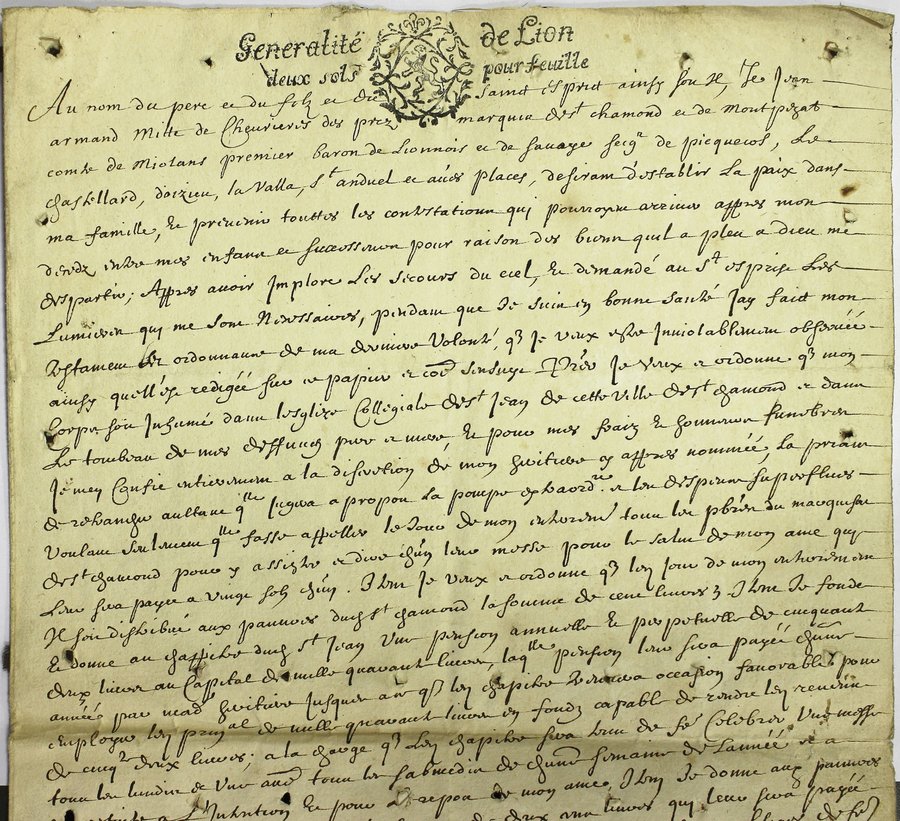 Generalité de Lion
deux sols pour feuille
Au nom du pere et du filz et du Sainct Esprit ainsy soit Il, Je Jean
armand Mitte de Cheurieres des prez marquis de st chamond et de Montpezat
comte de Miolans premier baron de Lionnois et de Sauoye seigr de picquecos, Le
Chastellard, doizieu, la Valla, st anduel et aures places, desirant d'establir La paix dans
ma famille, Et preuenir touttes les contestations qui pourroyent arriuer appres mon
deces entre mes enfans et successeurs pour raison des biens quil a pleu a dieu me
despartir; Appres auoir Imploré Les secours du ciel, Et demandé au st esprit Les
Lumieres qui me sont Necessaires, pendant que Je suis en bonne santé Jay faict mon
Testament et ordonnance de ma derniere Volonté, q Je veux estre Inuiolablement obseruée
ainsy quelle est redigée sur ce papier et coe sensuyt Je veux et ordonne q mon
Corps soit Inhumé dans lesglize Collegiale de st Jean de cette ville de st chamond et dans
Le tombeau de mes deffuncts pere et mere Et pour mes fraiz et honneurs funebres
Je men Confie entierement a la discretion de mon heritiere cy appres nommée, La priant
de retrancher aultant qlle Jugera a propos La pompe extraordre et les despences superflues
Voulant seulement qlle fasse appeller le Jour de mon enterremt tous les pbres du marquisat
de st chamond pour y assister et dire chun leur messe pour le salut de mon ame qui
Leur sera payée a vingt solz chun. Item Je veux et ordonne q les Jour de mon enterrement
Il soit distribué aux pauures dud st chamond la somme de cent liures Item Je fonde
Et donne au chappitre dud st Jean Vne pension annuelle Et perpetuelle de cinquante
deux liures au Capital de mille quarante liures, laqlle pension leur sera payée chune
année par mad heritiere Jusques a ce q led chappitre trouuera occasion fauorable pour
employer led prnal de mille quarante liures en fondz capable de rendre led reuenu
de cinqte deux liures; a la charge q Led chappitre sera tenu de fe Celebrer Vne messe
tous les lundis et Vne aue tous les sabmedis de chune semaine de Lannée
L'Intention Et pour le repos de mon ame. Item Je donne aux pauures
de deux liures qui leur sera payée